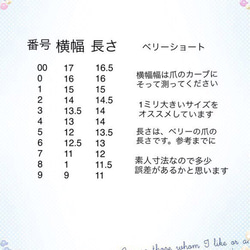 番号 横幅 長さ
00 17 16.5
0 16 16
1 15 15
2 14 14.5
3 13.5 14
4 13 14
5 12 13.5
6 12.5 13
7 11 12
8 1 11.5
9 9 11
ベリーショート
横幅幅は爪のカーブに
そって測ってください
1ミリ大きいサイズを
オススメしています
長さは、ベリーの爪の
長さです。参考までに
素人寸法なので多少
誤差があるかと思います
there wham I like as c